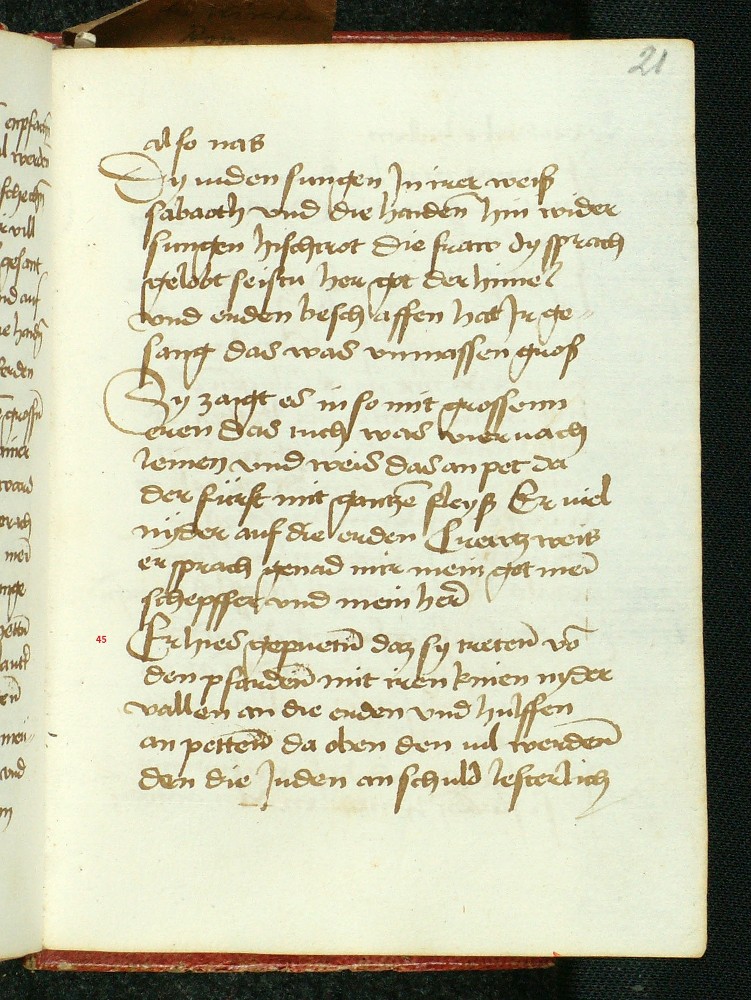 21
also nas
Dy iuden sungen In irer weiß
sabaoth vnd die haiden hin wider
sungen hischcrot die fraw dy sprach
gelobt seistu her got der himel
vnd erden beschaffen hat Ir ge-
sang das was vnmassen gros
Sy zaigt es in so mit grossenn
eren das tuch was vier nach
leinen vnd weis das an pet da
der fürst mit gantzē fleyß Er viel
nyder auf die erden Creutz weis
er sprach genad mir mein got mei
schepffer vnd mein her
45 Er hies gepueten daz sy treten vō
den pfarden mit iren knien nyder
vallen an die erden vnd hulffen
an petten da oben den vil werden
den die Juden an schuld lesterlich